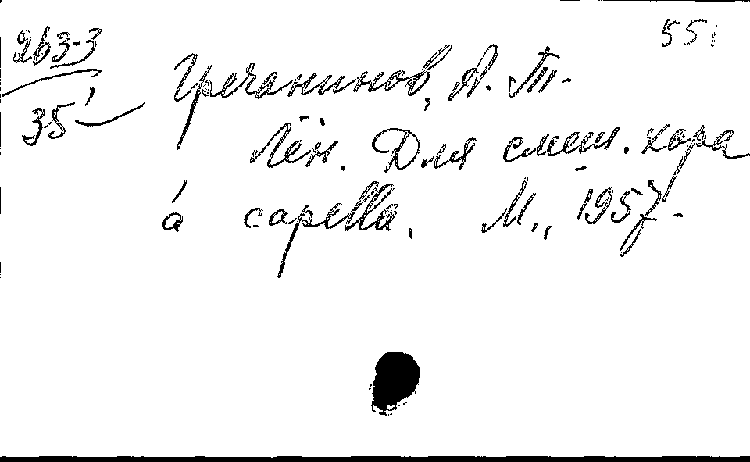 263-3
35
55
Гречанинов, А. Т.
Лён. Для смеш. хора
à capella. М., 1957.